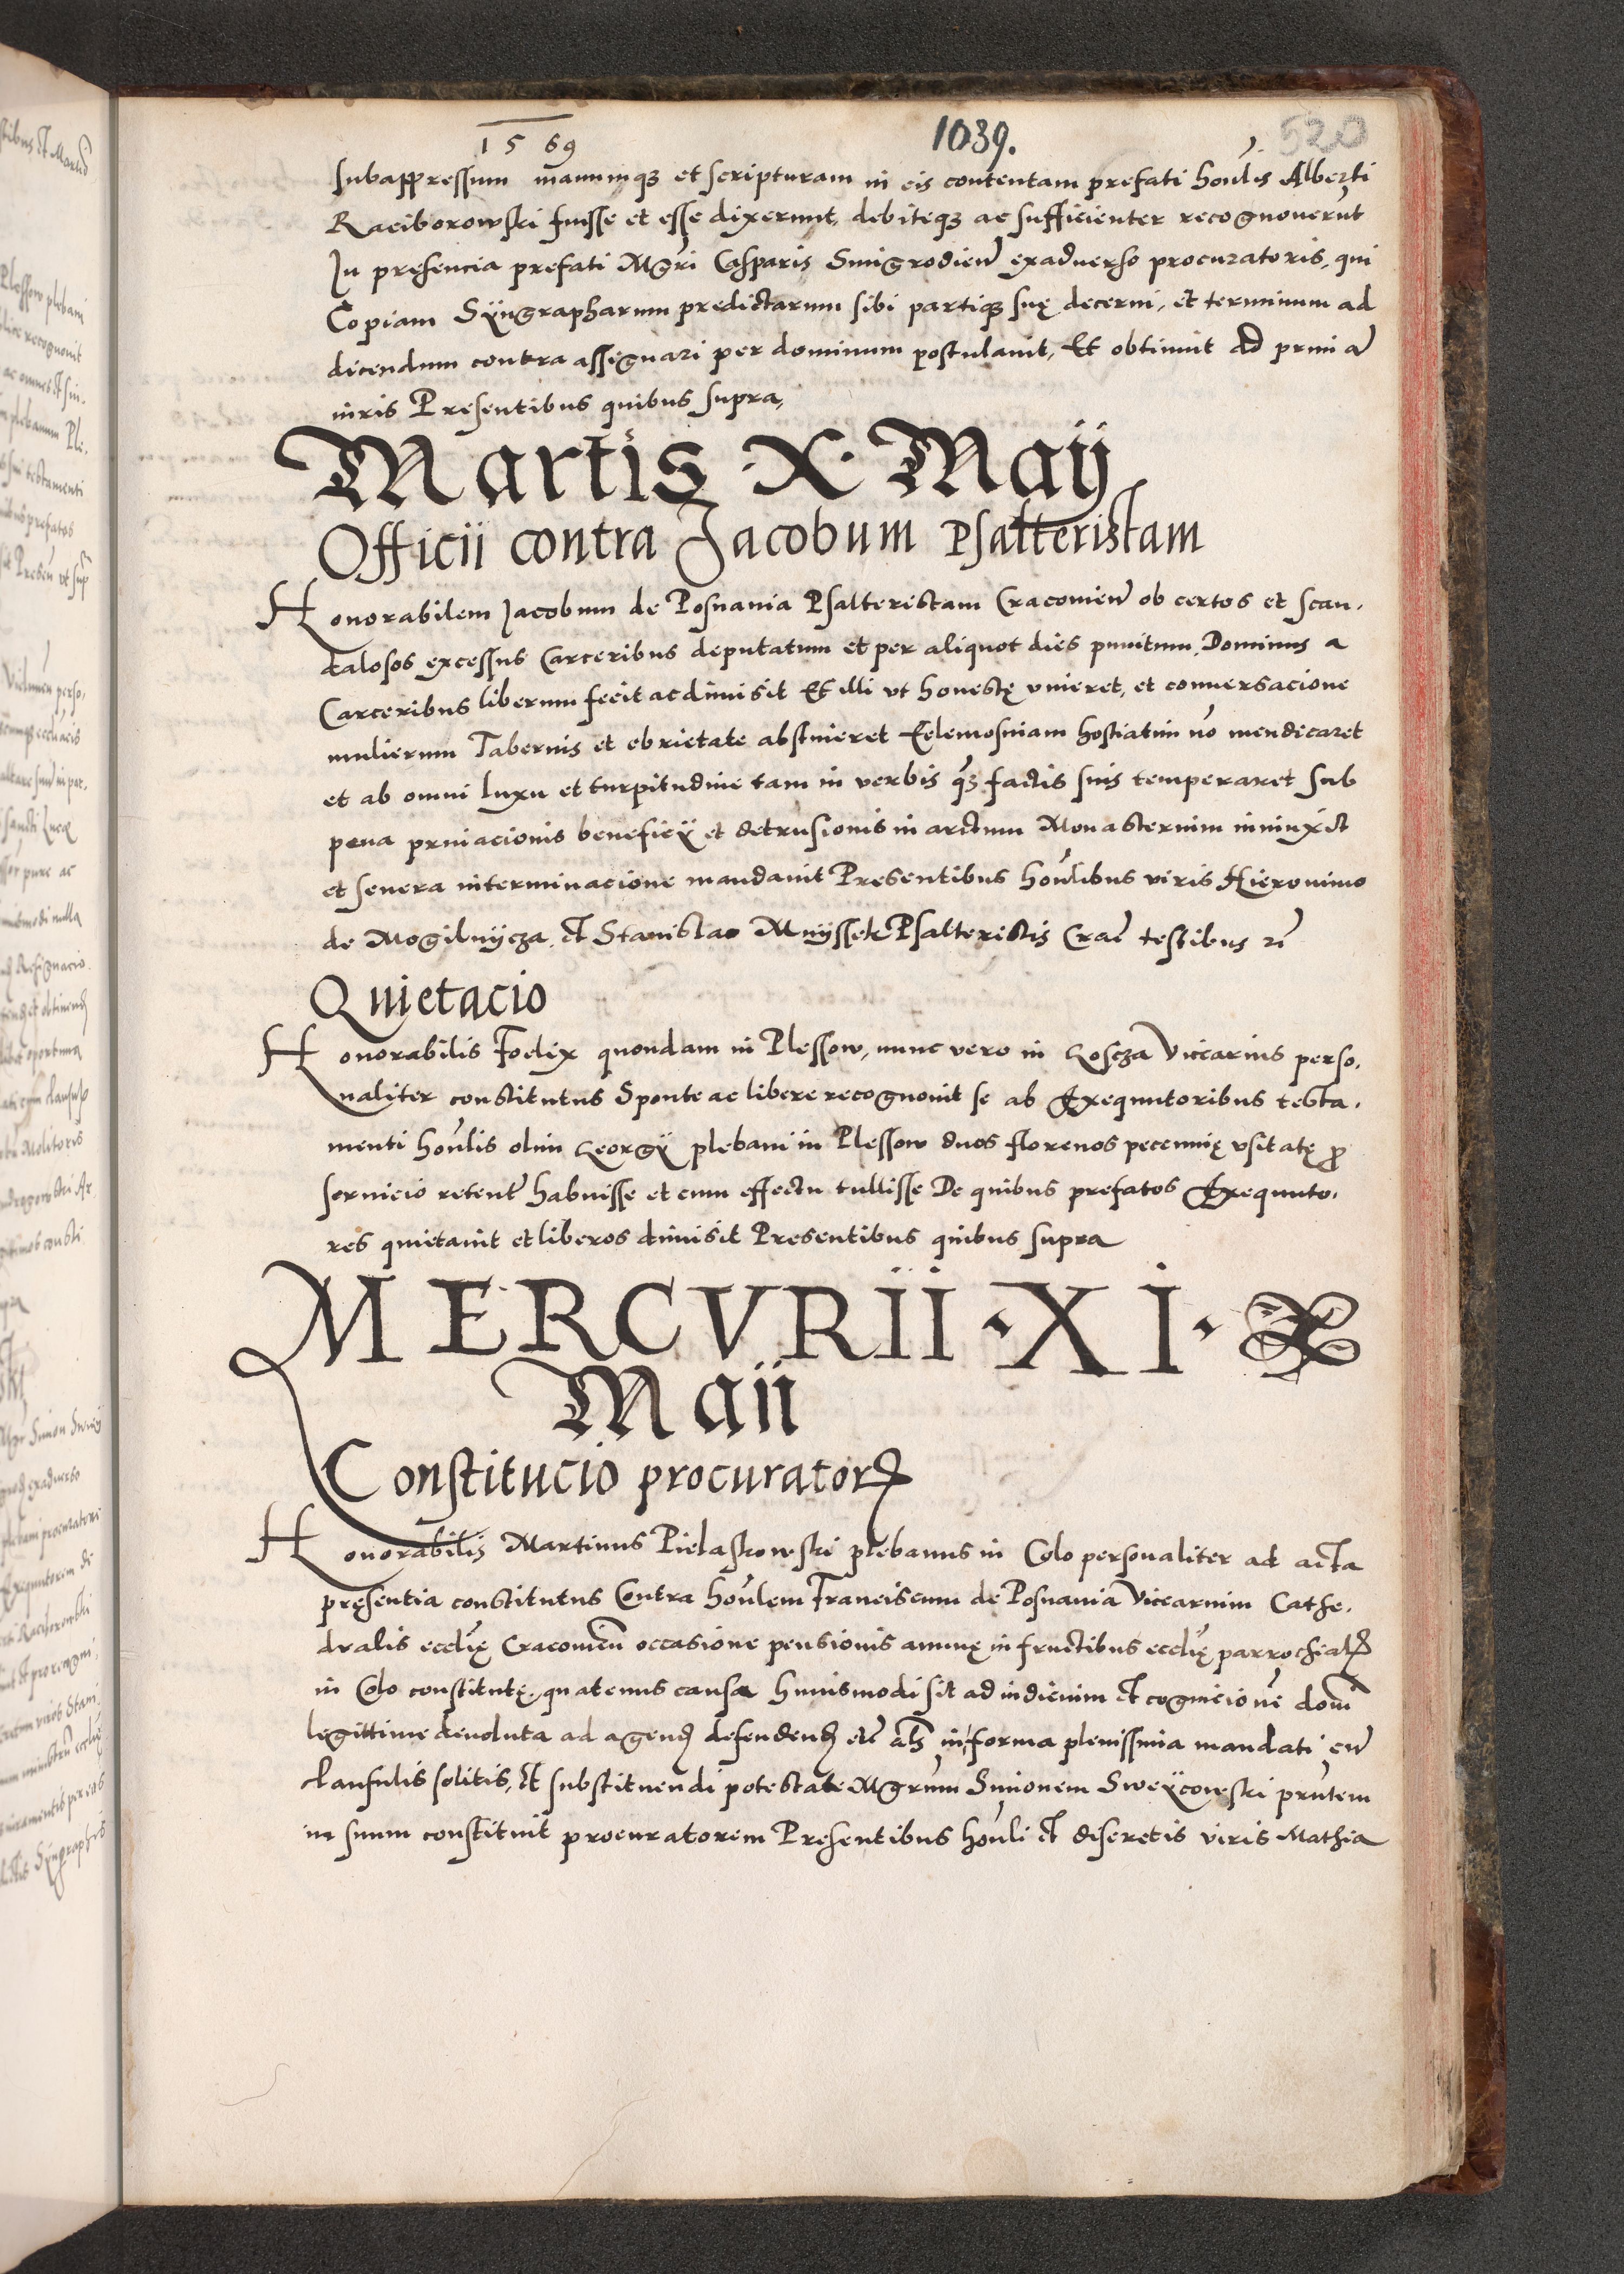 1569 1039. 520
subappressum manumqз et scripturam in eis contentam prefati hon̄lis Alberti
Raciborowski fuisse et esse dixerunt, debiteqз ac sufficienter recognouerūt
In presencia prefati Mgr̄i Casparis Smigrodien̄ exaduerso procuratoris, qui
Copiam Sÿngrapharum predictarum sibi partiqз suę decerni, et terminum ad
dicendum contra assignari per dominum postulauit, Et obtinuit ad
iuris Presentibus quibus supra,
Martis · X · Maij
Officii contra Jacobum Psalteristam
Honorabilem Jacobum de Posnania Psalteristam Cracouien̄ ob certos et scan,
dalosos excessus Carceribus deputatum et per aliquot dies punitum, Dominus a
Carceribus liberum fecit ac dimisit Et illi vt honestę viueret, et conuersacione
mulierum Tabernis et ebrietate abstineret Eelemosinam hostiatim nō mendicaret
et ab omni luxu et turpitudine tam in verbis qз̄ factis suis temperaret sub
pena priuacionis beneficÿ et detrusionis in arctum Monasterium iniunxit
et seuera interminacione mandauit Presentibus hon̄libus viris Hieronimo
de Mogilnÿcza, et Stanislao Mnÿssek Psalteristis Crac̄ testibus
Quietacio
Honorabilis Foelix quondam in Plessow, nunc vero in Loscza Vicearius perso,
naliter constitutus Sponte ac libere recognouit se ab Exequutoribus testa,
menti hon̄lis olim Georgÿ plebani in Plessow duos florenos pecunię vsitatę ꝓ
seruicio retent̄ habuisse et cum effectu tullisse De quibus prefatos Exequuto,
res quietauit et liberos dimisit Presentibus quibus supra
MERCVRII · XI ·
Maii
Constitucio procuratorꝝ
Honorabilis Martinus Pielaskowski plebanus in Colo personaliter ad acta
pręsentia constitutus Contra hon̄lem Franciscum de Posnania Vicearium Cathe,
dralis eccl̄ię Cracouien̄ occasione pensionis annuę in fructibus eccl̄ię parrochialꝭ
in Colo constitutę, quatenus causa huiusmodi sit ad iudicium et cognicionē dom̄
legittime deuoluta ad agend̄ defendend̄ in forma plenissima mandati cū
clausulis solitis, et substituendi potestate Mgrūm Simonem Sweÿcowski prn̄tem
in suum constituit procuratorem Presentibus hon̄li et discretis viris Mathia